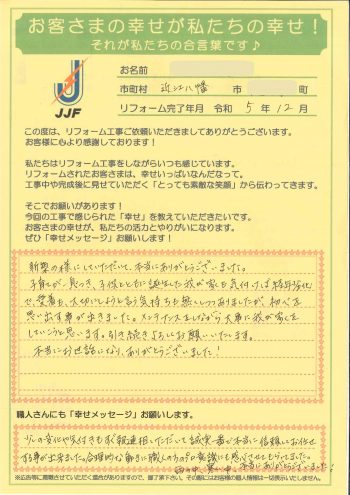 お客さまの幸せが私たちの幸せ！
それが私たちの合言葉です♪
JJF
お名前
市町村 近江八幡 市
リフォーム完了年月 令和 5 年 12 月
この度は、リフォーム工事ご依頼いただきましてありがとうございます。
お客様に心より感謝しております。
私たちはリフォーム工事をしながらいつも感じています。
リフォームされたお客さまは、幸せいっぱいなんだなって。
工事中や完成後に見せていただく「とっても素敵な笑顔」から伝わってきます。
そこでお願いがあります！
今回の工事で感じられた「幸せ」を教えていただきたいです。
お客さまの幸せが、私たちの活力とやりがいになります。
ぜひ「幸せメッセージ」お願いします！
新築の様にしていただいて本当にありがとうございました。
子育てが一息つき、子供とともに誕生した我が家も気付けば経年劣化
で、愛着も、大切にしようと言う気持ちも無くしつつありましたが、初心を
思い出す事が出来ました。メンテナンスをしながら大事に我が家を
していこうと思います。引き続きよろしくお願いいたします。
本当にお世話になり、ありがとうございました！
職人さんにも「幸せメッセージ」お願いします。
少しの変化や気付きも報連相いただいて誠実
本当に信頼してお任せ
する事が出来ました。
本当にありがとうございました！
※広告等に掲載させていただく場合がありますので、ご了承下さい。その際にはお客様の個人情報は一切表示いたしません。